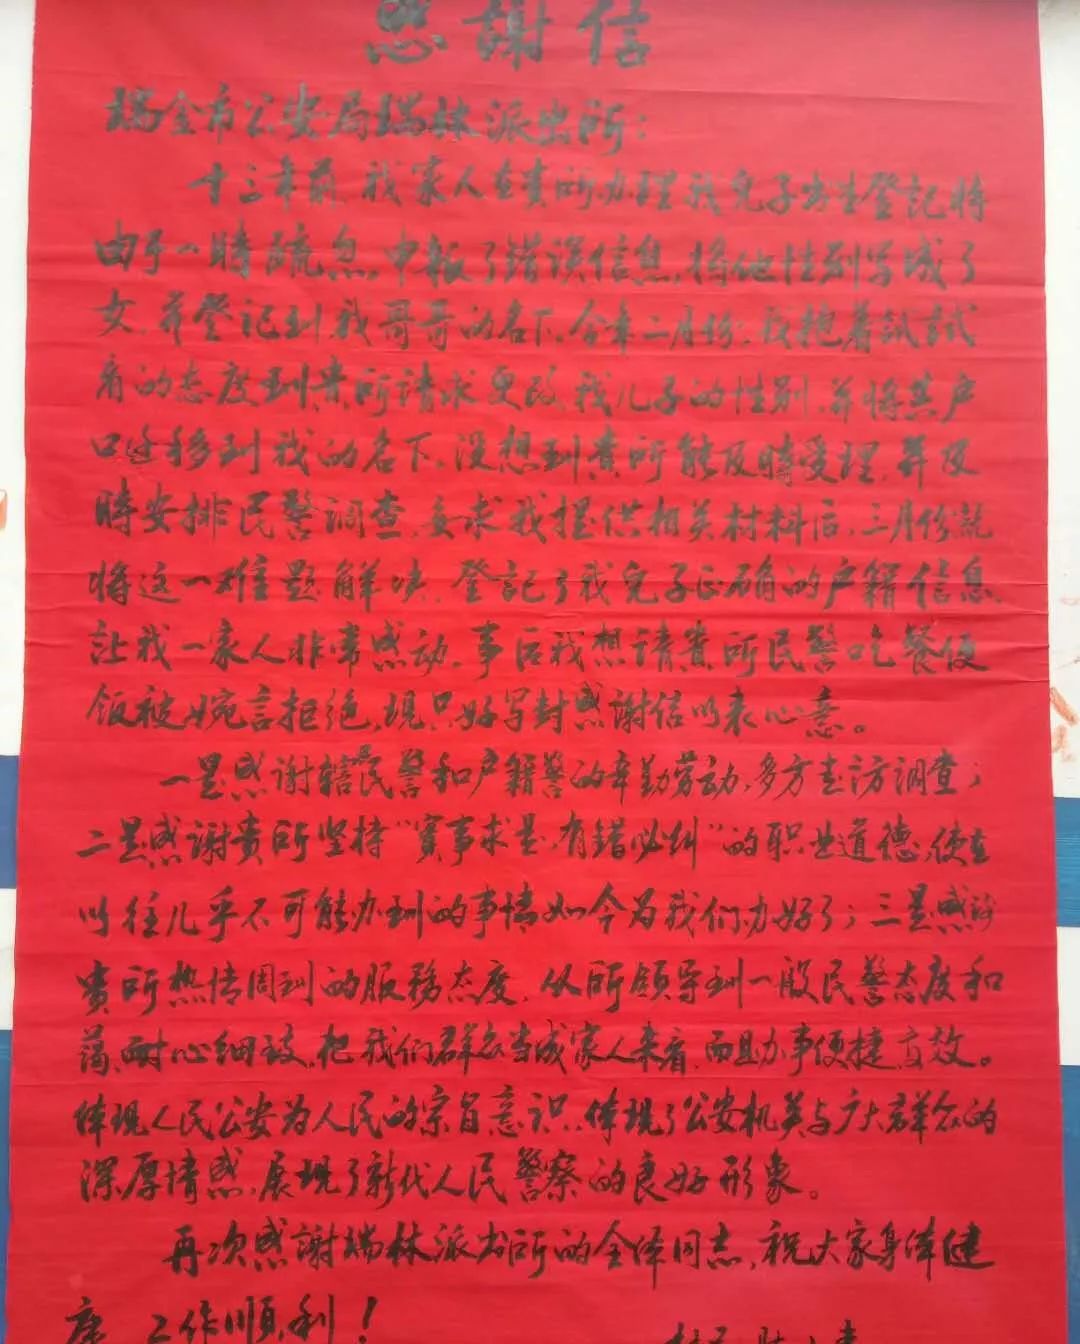 感謝信
瑞金市公安局瑞林派出所：
十三年前，我家人在貴所办理我兒子出生登記時
由于一時疏忽，申報了錯误信息，將他性别写成了
女，并登记到我哥哥的名下，今年二月份，我抱着試試
看的态度到貴所请求更改我儿子的性别，并將其户
口迁移到我的名下，没想到貴所能及時受理，并及
時安排民警调查，要求我提供相关材料后，三月份就
將这一难题解决，登記了我兒子正确的户籍信息，
让我一家人非常感动，事后我想请貴所民警吃餐便
饭被婉言拒绝，現只好写封感謝信以表心意。
一是感谢辖区民警和户籍警的辛勤劳动，多方走访调查；
二是感谢贵所坚持“實事求是，有錯必纠”的职业道德，使在
以往几乎不可能办到的事情如今为我们办好了；三是感謝
貴所热情周到的服務态度，从所领导到一般民警态度和
蔼，耐心细致，把我们群众当成家人来看，而且办事便捷，高效。
体现人民公安为人民的宗旨意识，体现了公安机关与广大群众的
深厚情感，展現了新代人民警察的良好形象。
再次感謝瑞林派出所的全体同志，祝大家身体健
康，工作順利！